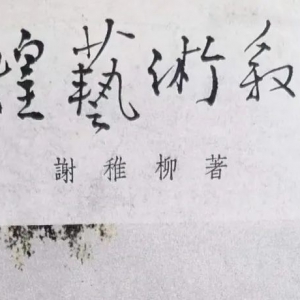 煌藝術叙
謝稚柳著